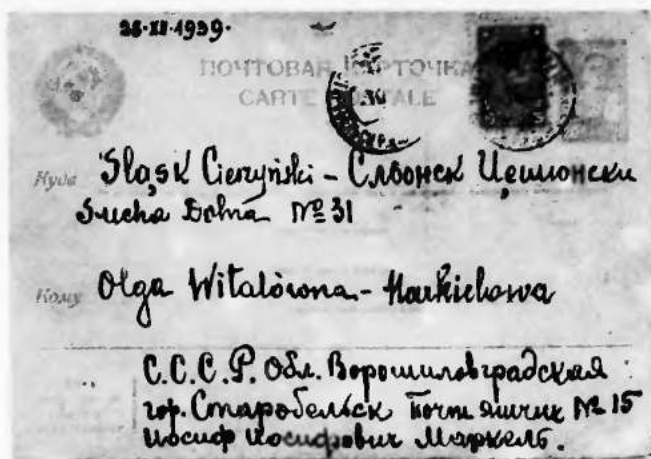 26·XI·1939·
ПОЧТОВАЯ КАРТОЧКА
CARTE POSTALE
Куда Śląsk Cieszyński - Слбонск Цешионски
Sucha Dolna № 31
Кому Olga Witalówna - Markielowa
С.С.С.Р. Обл. Ворошиловградская
гор. Старобельск Почт ящик № 15
Иосиф Иосифович Маркель.